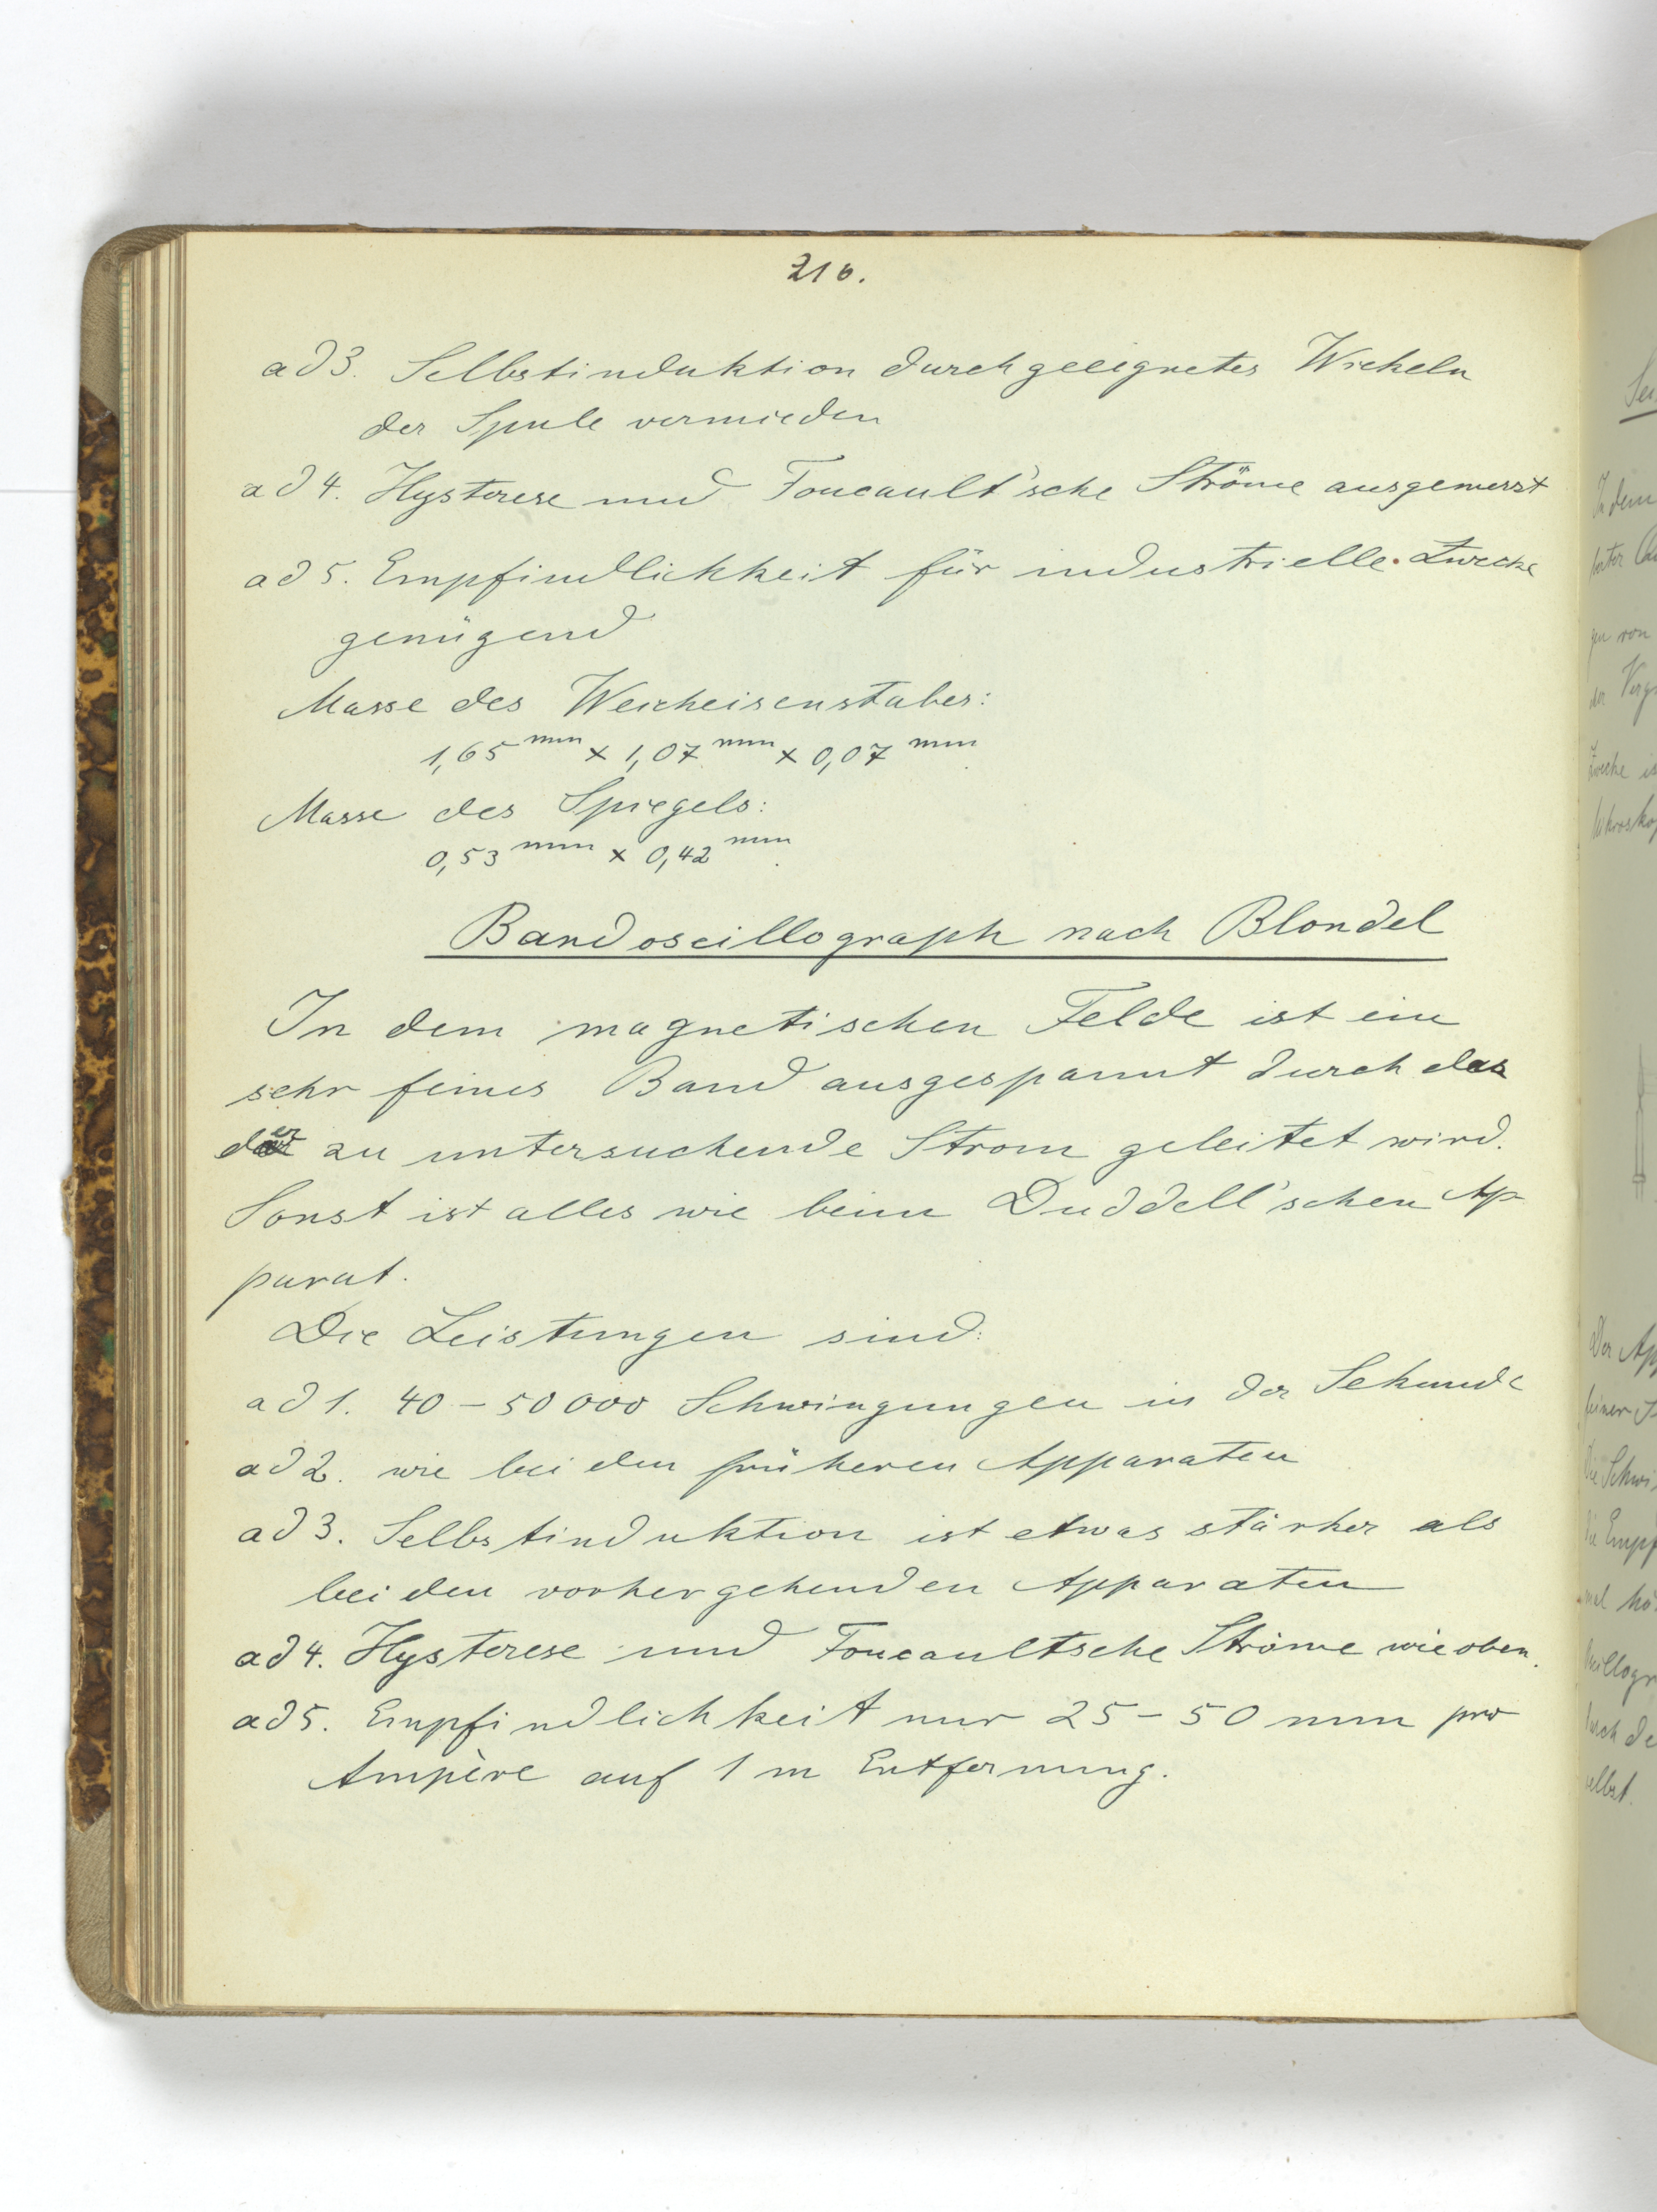 216.
ad 3. Selbstinduktion durch geeignetes Wickeln
der Spule vermieden
ad 4. Hysterese und Foucault'sche Ströme ausgemerzt
ad 5. Empfindlichkeit für industrielle Zwecke
genügend
Masse des Weicheisenstabes:
1,65 mm x 1,07 mm x 0,07 mm
Masse des Spiegels:
0,53 mm x 0,42 mm
Bandoscillograph nach Blondel
In dem magnetischen Felde ist ein
sehr feines Band ausgespannt durch das
der zu untersuchende Strom geleitet wird.
Sonst ist alles wie beim Duddell'schen Ap-
parat.
Die Leistungen sind:
ad 1. 40 – 50000 Schwingungen in der Sekunde
ad 2. wie bei den früheren Apparaten
ad 3. Selbstinduktion ist etwas stärker als
bei den vorhergehenden Apparaten
ad 4. Hysterese und Foucaultsche Ströme wie oben.
ad 5. Empfindlichkeit nur 25 – 50 mm pro
Ampère auf 1 m Entfernung.
In dem
gen von
Zwecke
Der
Die
selbst.